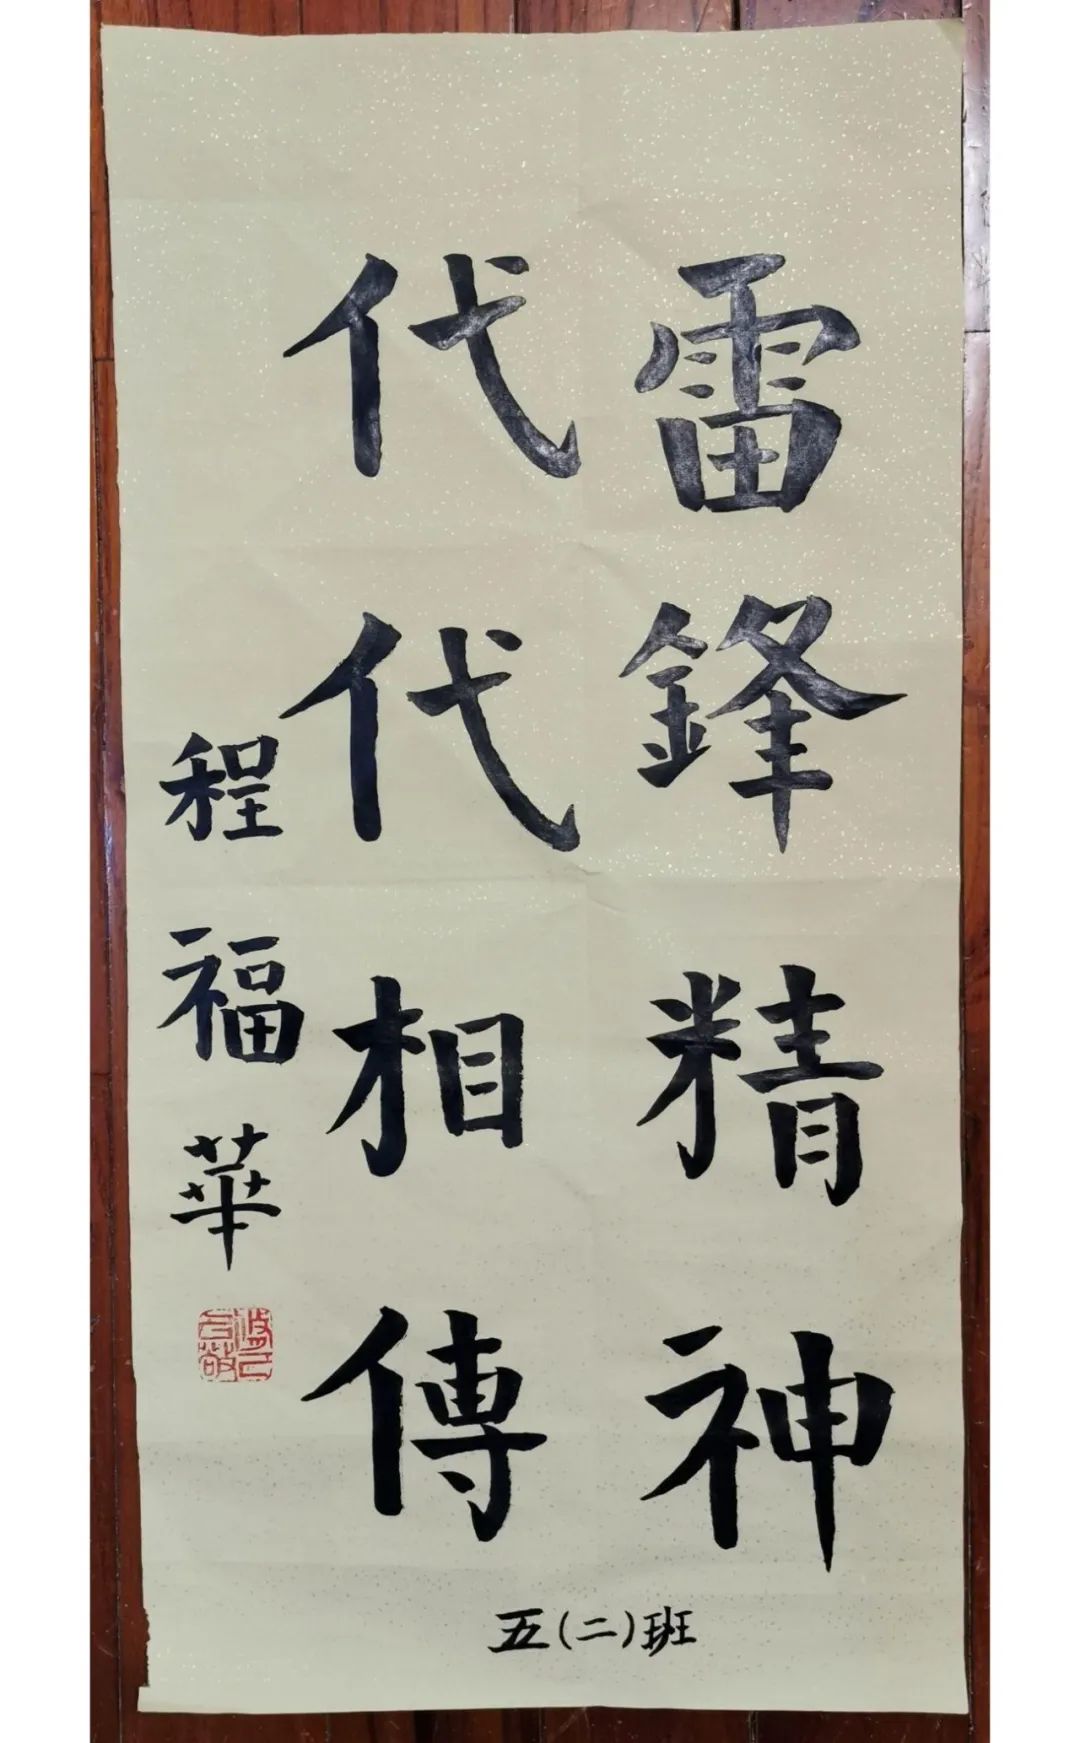 雷鋒精神
代代相傳
程福華
五(二)班